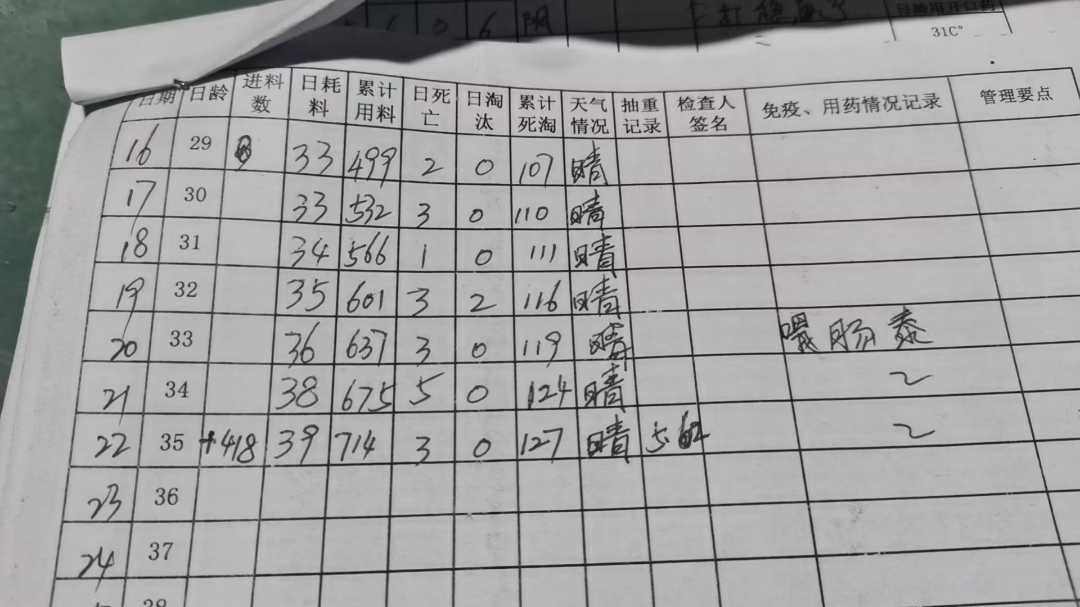 6 0 6 阴
31C°
日期 日龄 进料数 日耗料 累计用料 日死亡 日淘汰 累计死淘 天气情况 抽重记录 检查人签名 免疫、用药情况记录 管理要点
16 29 33 499 2 0 107 晴
17 30 33 532 3 0 110 晴
18 31 34 566 1 0 111 晴
19 32 35 601 3 2 116 晴
20 33 36 637 3 0 119 晴 肠泰
21 34 38 675 5 0 124 晴 〃
22 35 +418 39 714 3 0 127 晴 〃
23 36
24 37
38